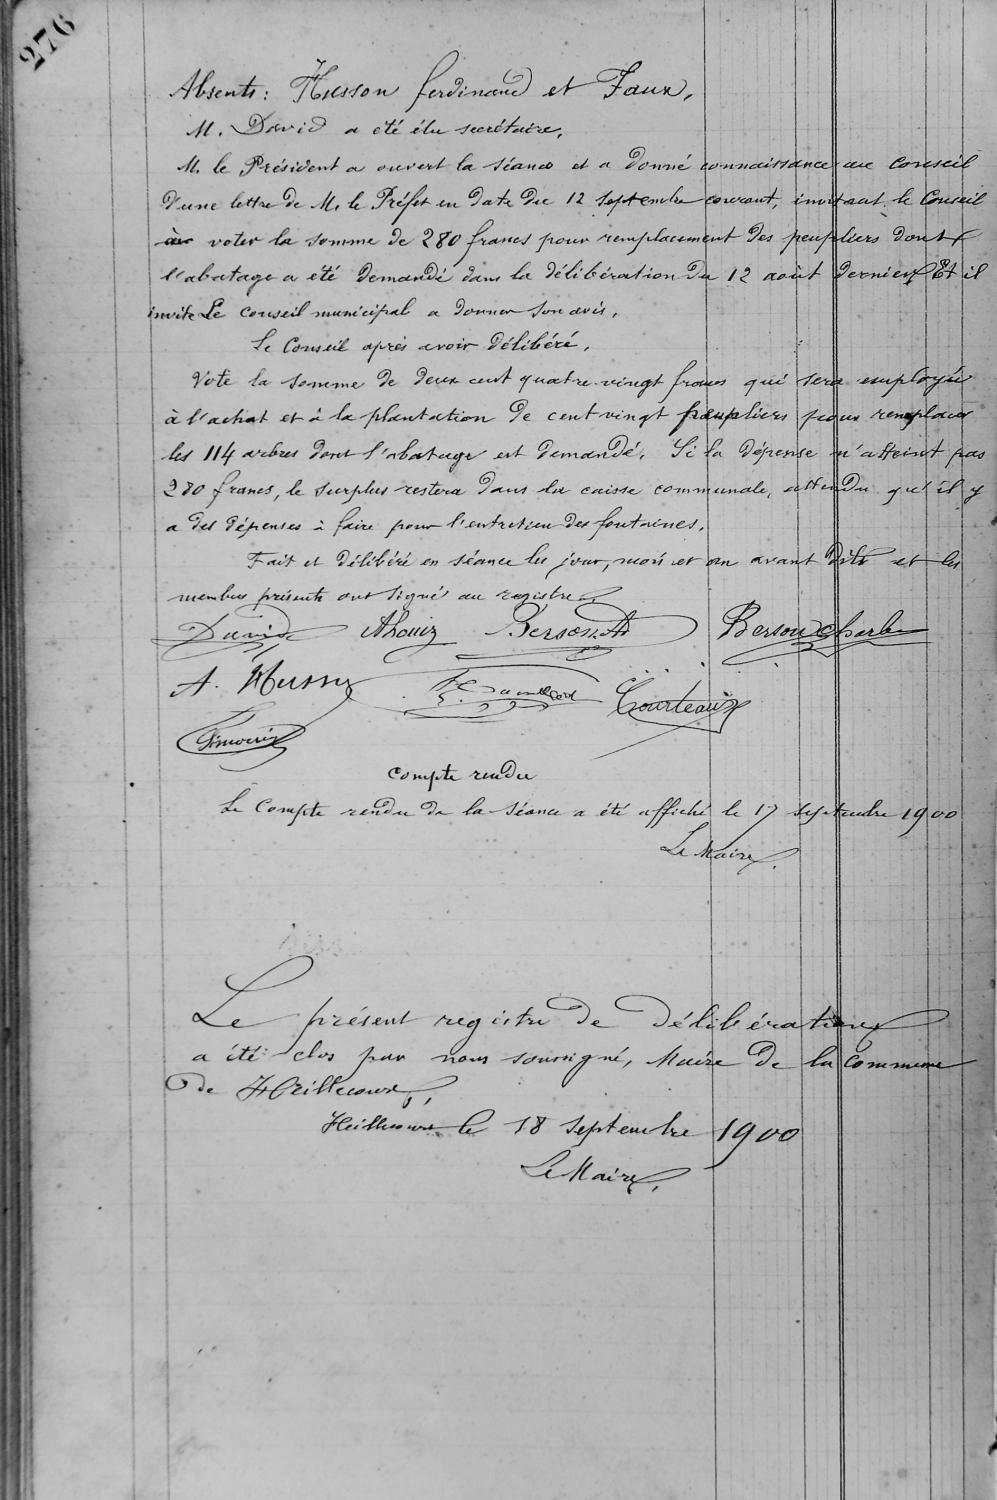 276
Absents: Husson ferdinand et Faux,
M. David a été élu secrétaire,
M. le Président a ouvert la séance et a donné connaissance au conseil
d'une lettre de M. le Préfet en date du 12 septembre courant, invitant le Conseil
à voter la somme de 280 francs pour remplacement des peupliers dont
l'abatage a été demandé dans la délibération du 12 août dernier, Et il
invite Le conseil municipal a donner son avis,
Le Conseil après avoir délibéré,
Vote la somme de deux cent quatre-vingt francs qui sera employée
à l'achat et à la plantation de cent vingt peupliers pour remplacer
les 114 arbres dont l'abatage est demandé. Si la dépense n'atteint pas
280 francs, le surplus restera dans la caisse communale, attendu qu'il y
a des dépenses à faire pour l'entretien des fontaines.
Fait et délibéré en séance les jour, mois et an avant dits et les
membres présents ont signé au registre
David Berson Berson Charles
A. Husson Courteaux
compte rendu
Le Compte rendu de la séance a été affiché le 17 septembre 1900
Le Maire,
Le présent registre de délibérations
a été clos par nous soussigné, Maire de la commune
de Heillecourt,
Heillecourt le 18 septembre 1900
Le Maire,